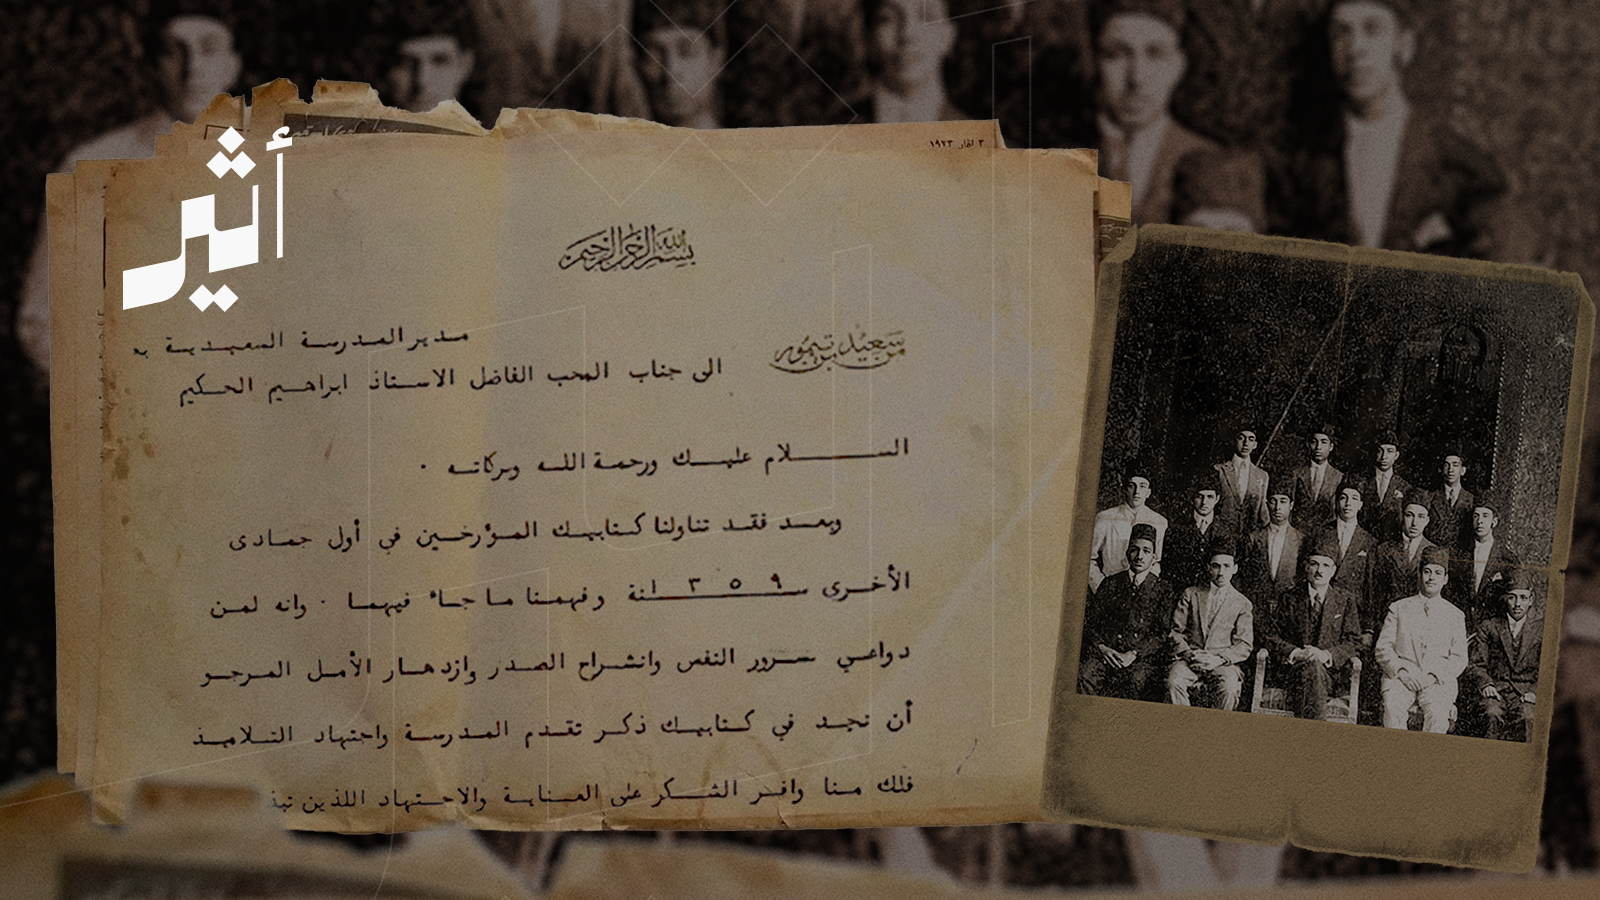 أثير
٣ اذار ١٩٢٣
بسم الله الرحمن الرحيم
من سعيد بن تيمور
مدير المدرسة السعيدية
الى جناب المحب الفاضل الاستاذ ابراهيم الحكيم
السلام عليك ورحمة الله وبركاته ٠
وبعد فقد تناولنا كتابيك المؤرخين في أول جمادى
الأخرى سنة ١٣٥٩ وفهمنا ما جاء فيهما ٠ وانه لمن
دواعي سرور النفس وانشراح الصدر وازدهار الأمل المرجو
أن نجد في كتابيك ذكر تقدم المدرسة واجتهاد التلاميذ
فلك منا وافر الشكر على العناية والاجتهاد اللذين